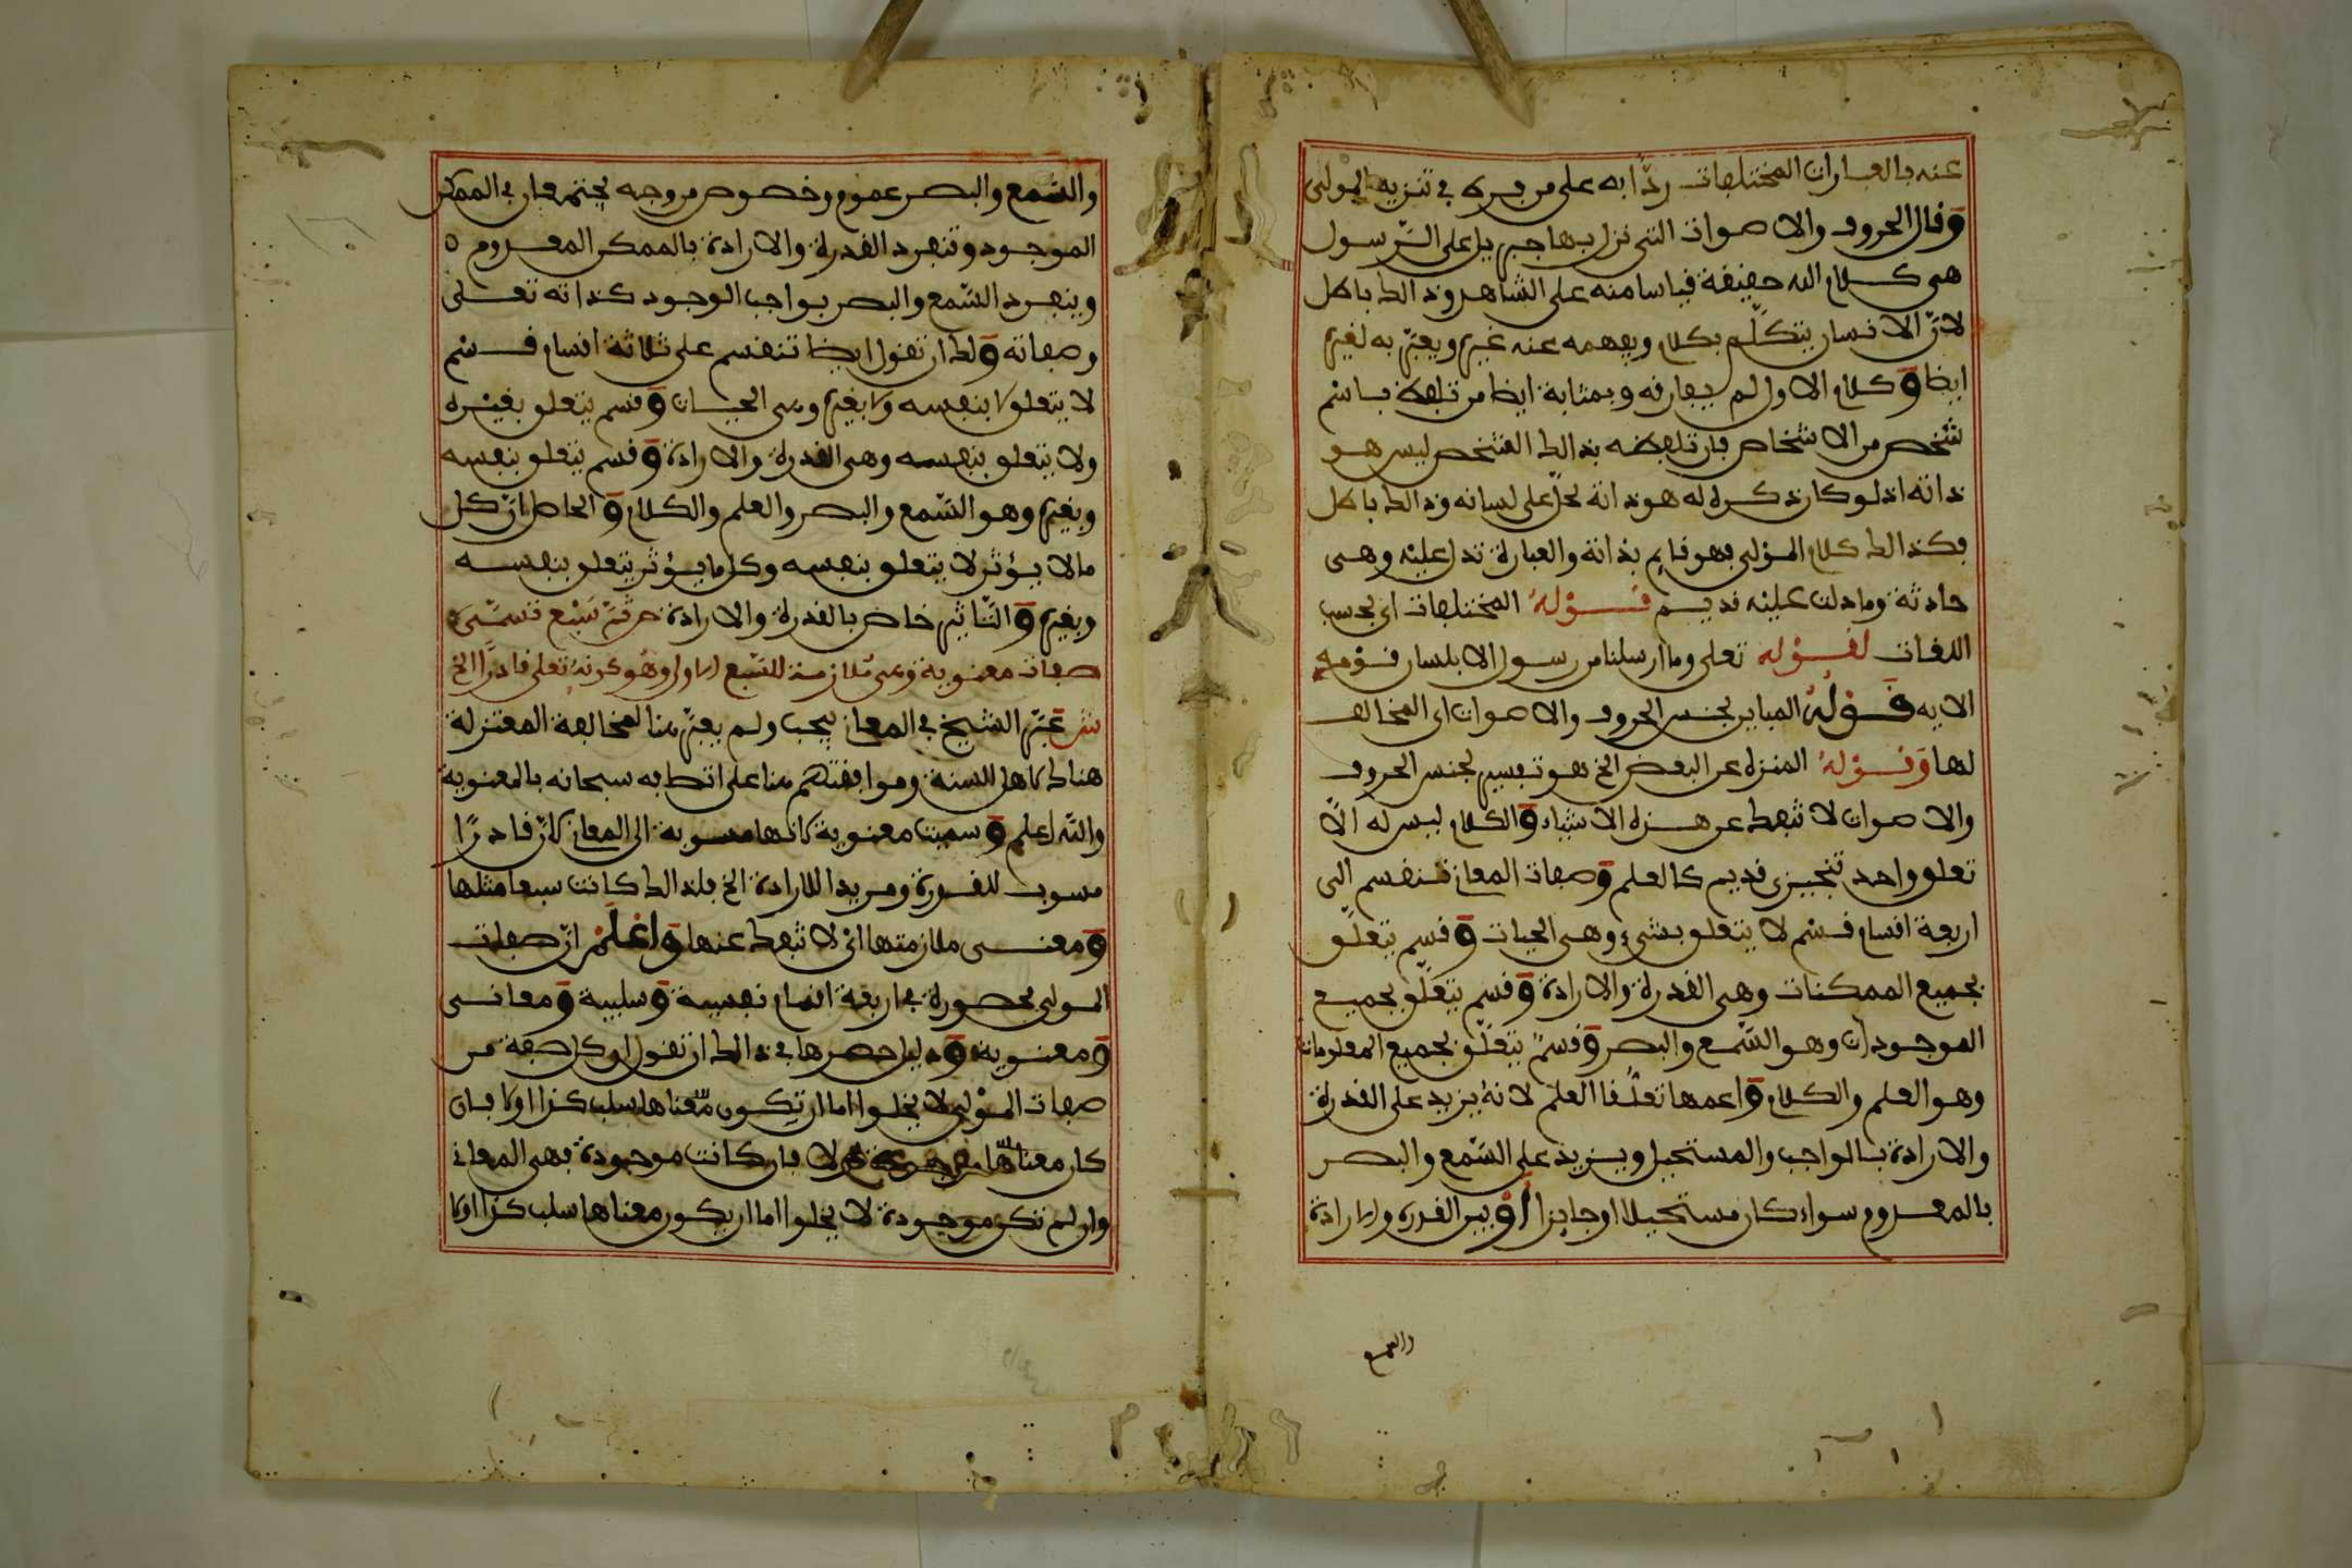 عنه بالعبارات المختلفات ردّا به على من فرّه في تنزيه المولى
وقال الحروف والاصوات التي نزل بها جبريل على الرّسول
هي كلام الله حقيقة قياسا منه على الشاهد وذالك باطل
لانّ الانسان يتكلّم بكلام ويفهمه عنه غيره ويعبّر به لغيره
ايضا وكلام الاول لم يفارقه وبمثابة ايضا من تلفظ باسم
شخص من الاشخاص فان تلفظه بذالك الشخص ليس هو
ذاته اذ لو كان ذكره له هو ذاته لحلّ على لسانه وذالك باطل
فكذالك كلام المولى فهو قايم بذاته والعبارة تدل عليه وهي
حادثة وما دلت عليه قديم قوله المختلفات اي بحسب
اللغات لقوله تعلى وما ارسلنا من رسول الا بلسان قومه
الايه قوله المباين لجنس الحروف والاصوات اي المخالف
لها وقوله المنزه عن البعض الخ هو تفسير لجنس الحروف
والاصوات لا تنفك عن هذه الاشياء والكلام ليس له الّا
تعلق واحد تنجيزي قديم كالعلم وصفات المعاني تنقسم الى
اربعة اقسام قسم لا يتعلق بشيء وهي الحيات وقسم يتعلّق
بجميع الممكنات وهي القدرة والارادة وقسم يتعلّق بجميع
الموجودات وهو السّمع والبصر وقسمٌ يتعلّق بجميع المعلومات
وهو العلم والكلام واعمها تعلّقا العلم لانهُ يزيد على القدرة
والارادة بالواجب والمستحيل ويزيد على السّمع والبصر
بالمعدوم سواء كان مستحيلا او جايزا وبين القدرة والارادة
والسمع
والسّمع والبصر عموم وخصوص من وجه يجتمعان في الممكن
الموجود وتنفرد القدرة والارادة بالممكن المعدوم
وينفرد السّمع والبصر بواجب الوجود كذاته تعلى
وصفاته ولك ان تقول ايضا تنقسم على ثلاثة اقسام قسم
لا يتعلق لا بنفسه ولا بغيره وهي الحيات وقسم يتعلق بغيره
ولا يتعلق بنفسه وهي القدرة والارادة وقسم يتعلق بنفسه
وبغيره وهو السّمع والبصر والعلم والكلام والحاصل انّ كل
مالا يؤثر لا يتعلق بنفسه وكل ما يؤثر يتعلق بنفسه
وبغيره والتّاثير خاص بالقدرة والارادة ص ثمّ سَبْع تسمّى
صفات معنوية وهي ملازمة للسّبع الاولى وهو كونهُ تعلى قادرًا الخ
ش عبّر الشيخ في المعاني بيجب ولم يعبّر هنا لمخالفة المعتزلة
هناك لاهل السنة وموافقتهم هنا على اتصافه سبحانه بالمعنوية
والله اعلم وسميت معنوية لانها منسوبة الى المعاني لانّ قادرًا
منسوب للقدرة ومريدا للارادة الخ فلذالك كانت سبعا مثلها
ومعنى ملازمتها اي لا تنفك عنها واعْلَمْ انّ صفات
المولى محصورة في اربعة اقسام نفسية وسلبية ومعاني
ومعنوية ودليل حصرها في ذالك ان تقول ان كل صفة من
صفات المولى لا يخلوا اما ان تكون معناها سلب كذا اولا فان
كان معناها لا فان كانت موجودة فهي المعاني
وان لم تكن موجودة لا يخلوا اما ان يكون معناها سلب كذا اولا